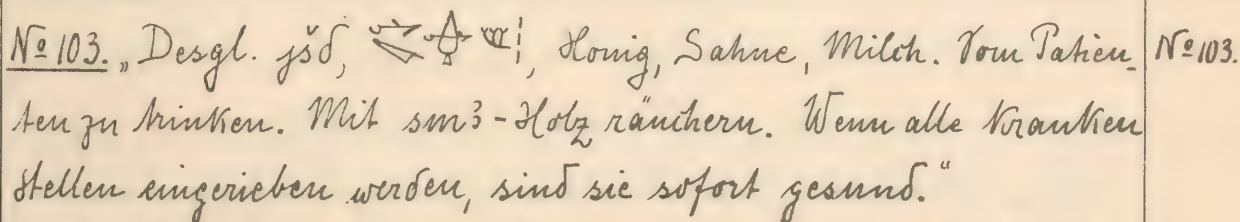 No 103. „Desgl. jšd, , Honig, Sahne, Milch. Vom Patien- No 103.
ten zu trinken. Mit sm3-Holz räuchern. Wenn alle kranken
Stellen eingerieben werden, sind sie sofort gesund.“